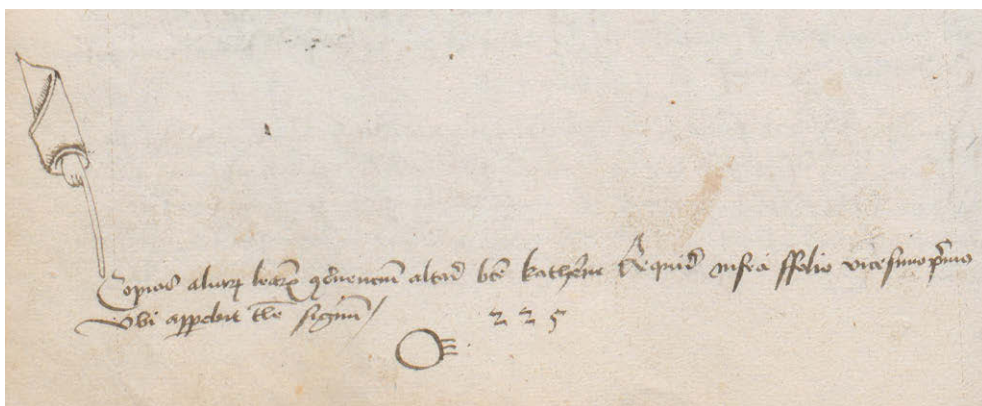 Copias aliarum litterarum concernencium altare beate katherine Require infra ffolio vicesimo primo
Vbi apparebit tale signum /
2 2 5